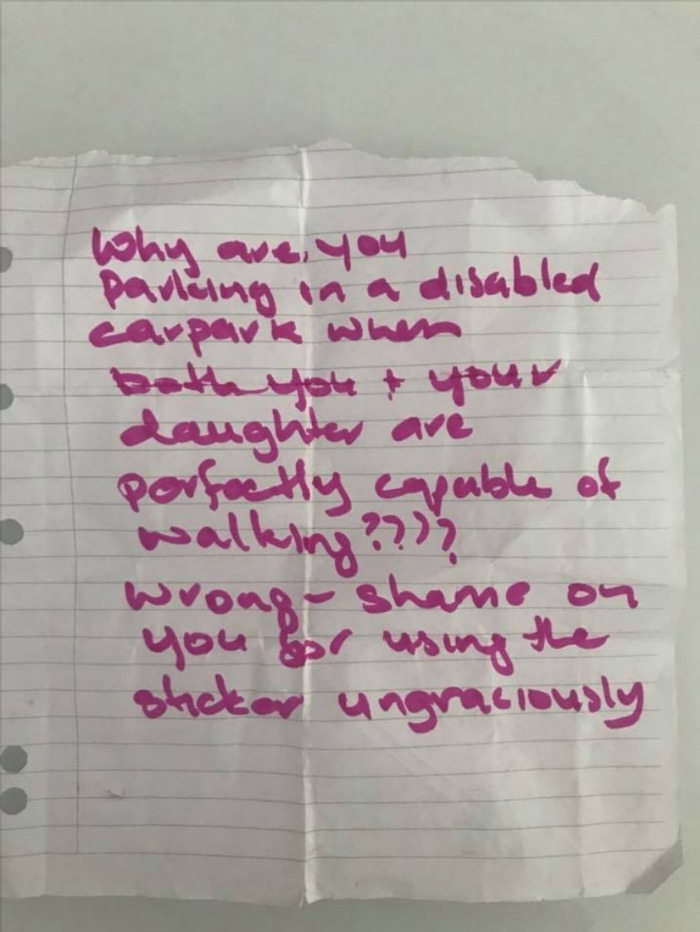 Why are you
parking in a disabled
carpark when
both you + your
daughter are
perfectly capable of
walking????
Wrong - shame on
you for using the
sticker ungraciously